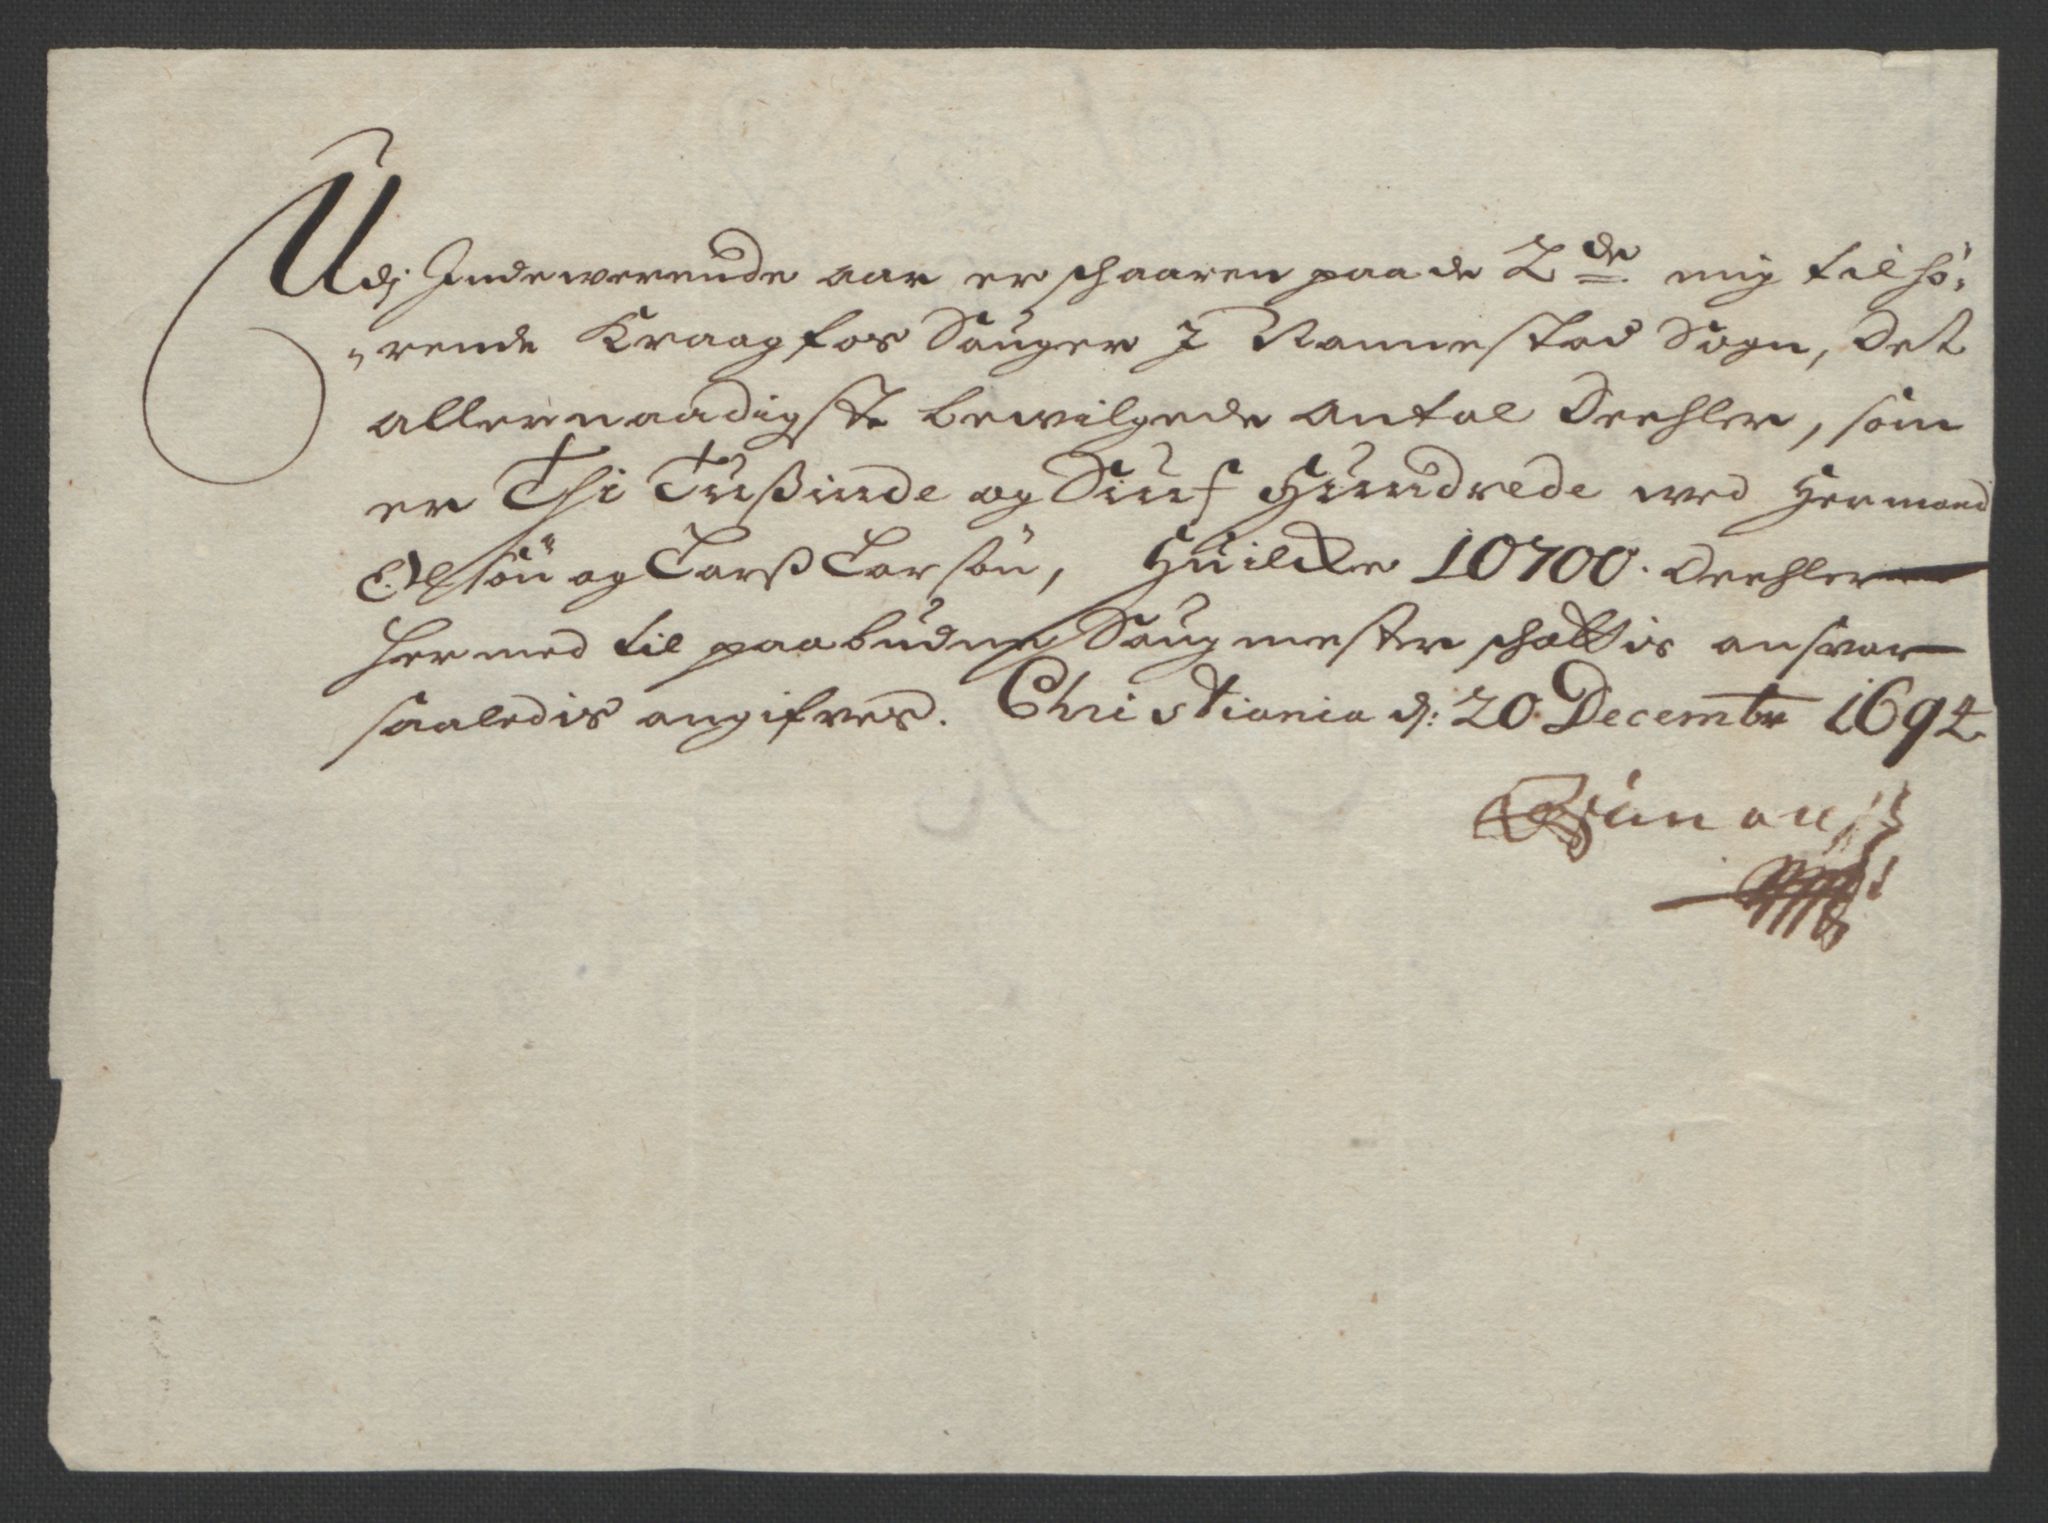 Udj Indewerende aar er schaaren paa de 2de mig tilhö-
rende Kraagfos Sauger J Rannestad Sogn, Det
allernaadigste bewilgede antal Deehler, som
er Thi Tußinde og Siuf Hundrede wed Hermand
Olßön og Larß Larsön, Huilcke 10700. Deehler
hermed til paabudne Saugmester schattis ansvar
saaledis angifves. Christiania dj: 20 Decembr 1692